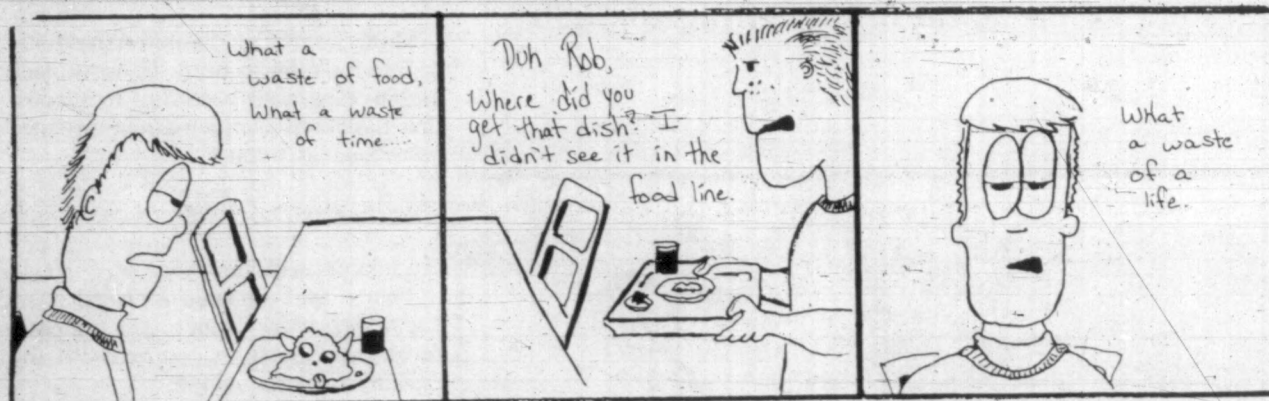 What a
waste of food,
What a waste
of time...
Duh Rob,
Where did you
get that dish? I
didn't see it in the
food line.
What
a waste
of a
life.